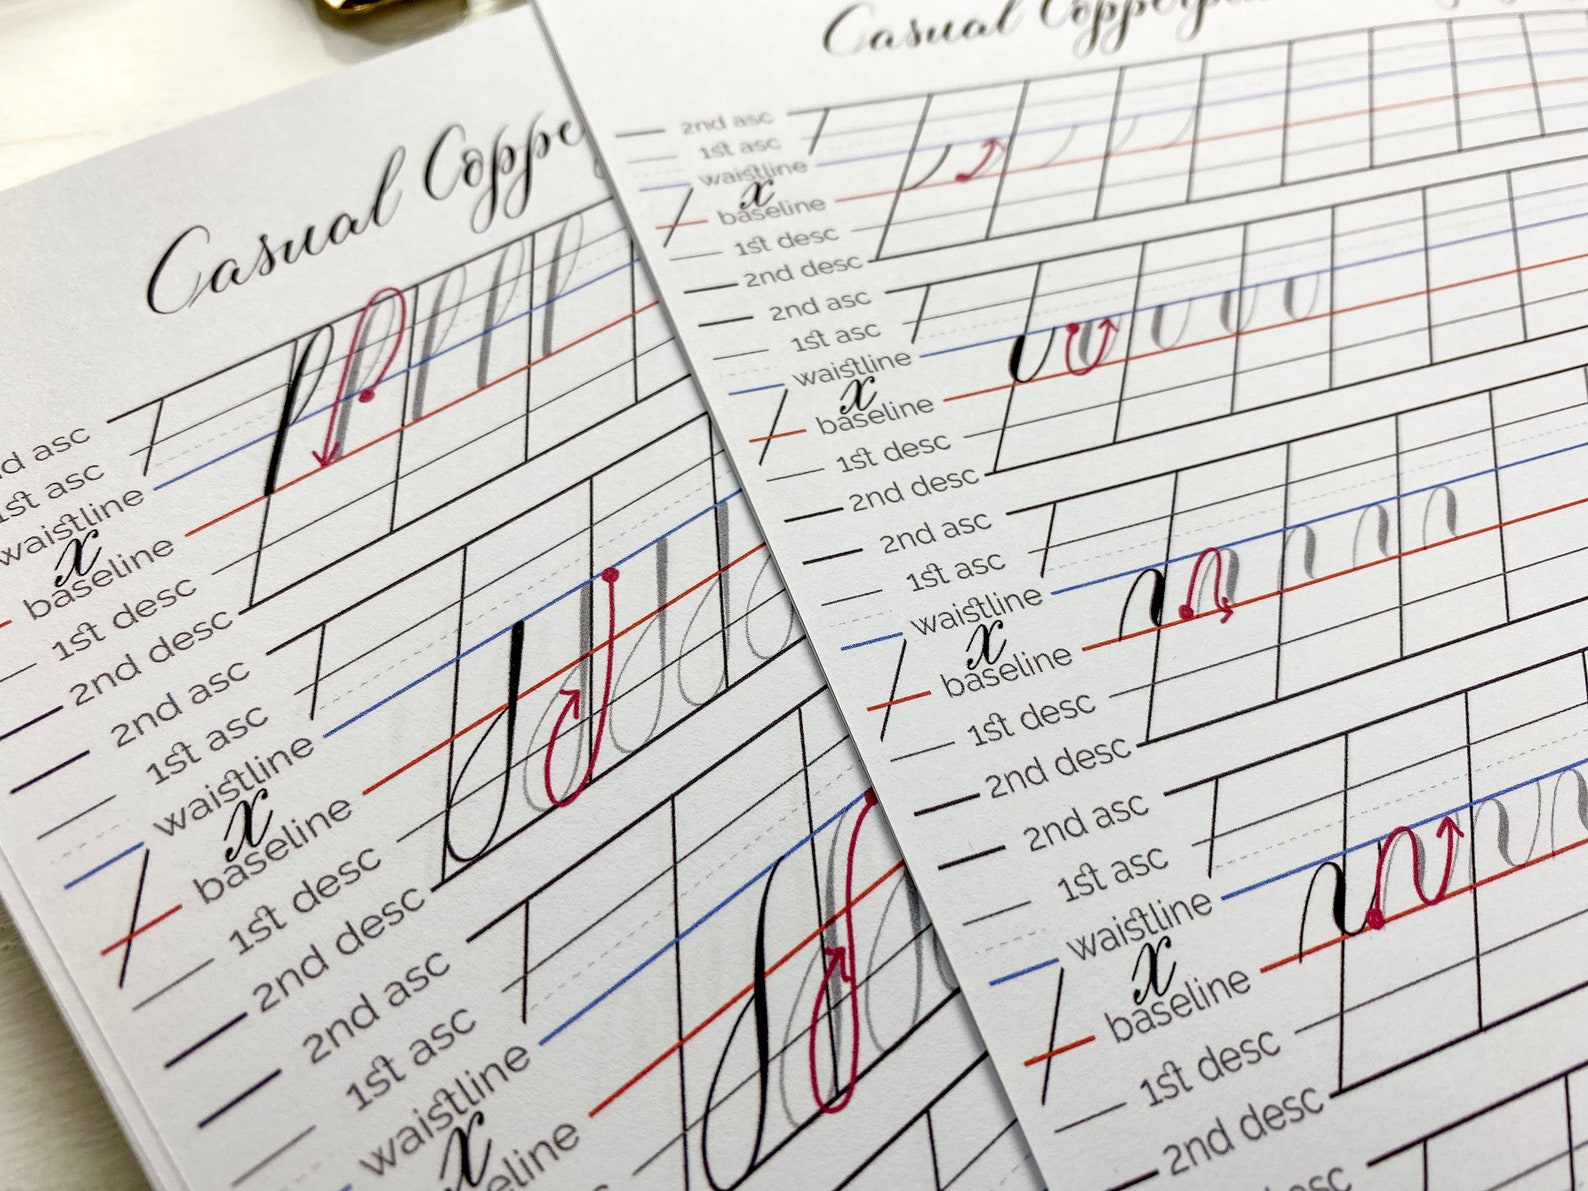 Casual Coppe
nd asc
1st asc
waistline
x
baseline
1st desc
2nd desc
2nd asc
1st asc
waistline
x
baseline
1st desc
2nd desc
2nd asc
1st asc
waistline
x
eline
Casual Copperp
2nd asc
1st asc
waistline
x
baseline
1st desc
2nd desc
2nd asc
1st asc
waistline
x
baseline
1st desc
2nd desc
2nd asc
1st asc
waistline
x
baseline
1st desc
2nd desc
2nd asc
1st asc
waistline
x
baseline
1st desc
2nd desc
sc